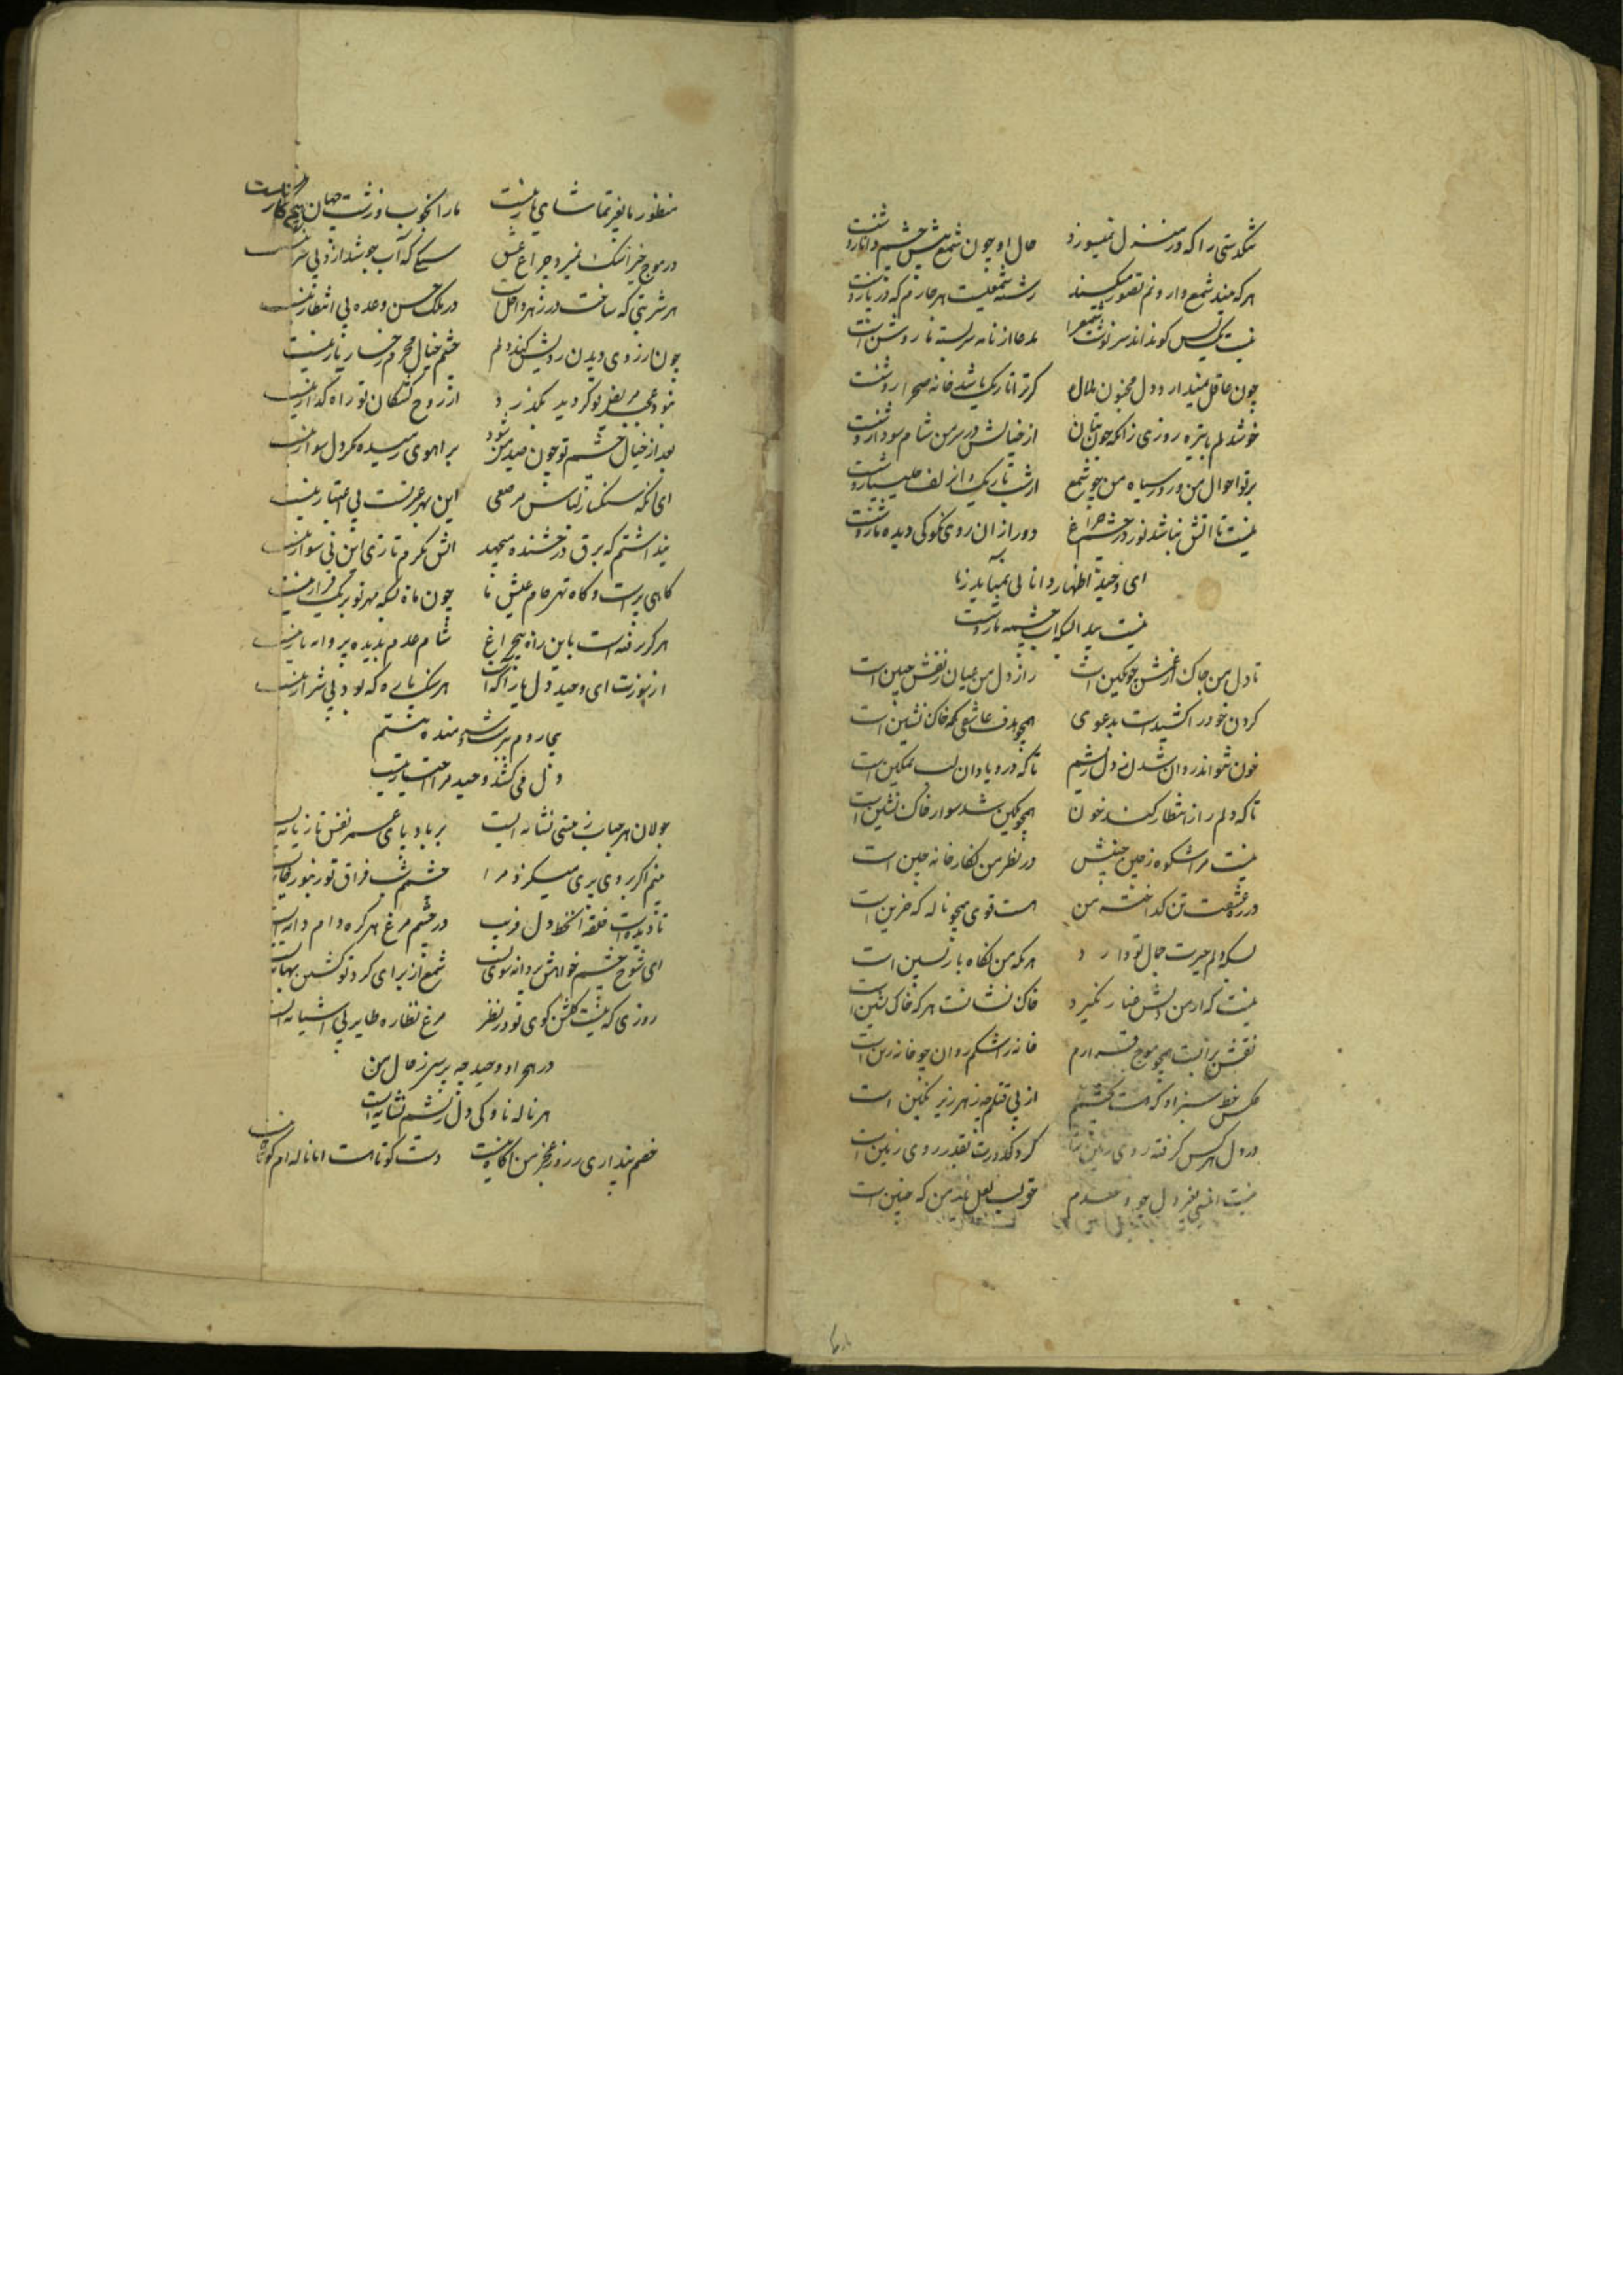 تنگدستی را که در منزل نمیسوزد حال او چون شمع پیش چشم دانا روشنست
هرکه بیند شمع دارونم تصور میکند رشته شمعیست هر خارم که در پا روشنست
نیست یک کس کو نداند سرنوشت مدعا از نامه سربسته ما روشن است
چون عاقل نمیدارد دل مجنون ملال گرترا تاریک باشد خانه صحرا روشنست
خوشدلم با تیره روزی زانکه چون از خیالش در سر من شام سودا روشنست
بر تو احوال من و روز سیاه من چو شمع از شب تاریک و از زلف روشنست
نیست تا آتش نباشد نور در چشم چراغ دور از آن روی نکو کی دیده ما روشنست
ای وحید اظهار دانائی نمیآید ز ما
نیست پیدا اینکه آب چشمه ما روشنست
تا دل من چاک از غمش چو نگین است راز دل من عیان ز نقش جبین است
گردن خود را کشیدست بدعوی همچو هدف عاشقی که خاک نشین است
خون نتواند روان شدن ز دل ریشم تا که درو یاد آن لب نمکین است
تا که دلم را ز انتظار کند خون همچو نگین شد سوار خاک نشین است
نیست مرا شکوه ز چین جبینش در نظر من نگارخانه چین است
در ره عشقت تن گداخته من هست قوی همچو ناله که حزین است
بسکه دلم حیرت جمال تو دارد هر نگه من نگاه بازپسین است
نیست که از من دلش غبار نگیرد خاک نشانست هرکه خاک نشین است
نقش برآبست همچو موج قرارم خانه ز اشکم روان چو خانه زین است
عکس خط سبز او که هست بچشمم از پی قتلم چه زهر زیر نگین است
در دل هرکس گرفته روی زمین گرد کدورت بقدر روی زمین است
نیست انیسی بغیر دل چو وجودم
منظور ما بغیر تماشای یار نیست ما را بخوب و زشت جهان هیچ کار نیست
در موج خیز اشک نمیرد چراغ عشق سنگی که آب جوشد ازو بی شرار نیست
هر شربتی که ساخت در زهر داخل است در ملک حسن وعده بی انتظار نیست
چون آرزوی دیدن رویش کند دلم چشم خیال محرم رخسار یار نیست
از روح کشتگان تو راه گذار نیست
بعد از خیال چشم تو چون صید من شود بر آهوی رمیده مگر دل سوار نیست
ای آنکه سنگ از لباس مرصعی این بهر عزتست پی اعتبار نیست
پنداشتم که برق درخشنده میجهد آتش بگرم تازی این نی سوار نیست
گاهی پرست و گاه تهی جام عیش ما چون ماه یکه مهر تو بریک قرار نیست
هرکز نرفته است باین راه بیچراغ شام عدم بدیده پروانه تار نیست
از نورت ای وحید دل ما پر آتش هر سنگ پاره که بود بی شرار نیست
بیجا روم برشته شرمنده نیستم
دل می کشد وحید مرا اختیار نیست
جولان هر حباب ز هستی نشانه ایست بر بادپای عمر نفس تازیانه ایست
بینم اگر بروی پری میگزد مرا چشمم شب فراق تو زنبورخانه ایست
تا دیده است حلقه آن خط دل فریب در چشم مرغ هر گره دام دانه ایست
ای شوخ چشم خواهش پروانه سوی تست شمع از برای گرد تو گشتن بهانه ایست
روزی که نیست گلشن کوی تو در نظر مرغ نظاره طایر بی آشیانه ایست
در هجر او وحید چه پرسی ز حال من
هر ناله ناوکی و دل ریشم نشانه ایست
خصم پنداری ز زور عجز من آگاه نیست دست کوتاهست اما ناله ام کوتاه نیست